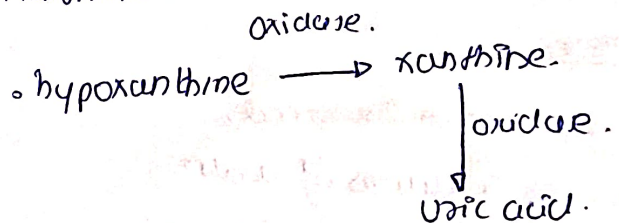 oxidase.
• hypoxanthine → xanthine.
oxidase.
Uric acid.